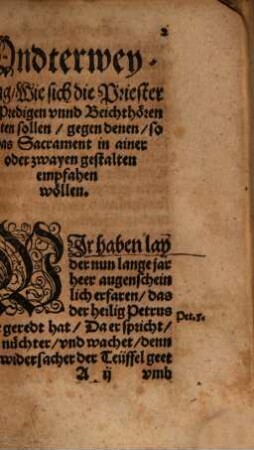 2
Vndterwey-
ng/Wie sich die Priester
Predigen vnnd Beichthören
ten sollen/ gegen denen/ so
as Sacrament in ainer
oder zwayen gestalten
empfahen
wöllen.
WIr haben lay
der nun lange jar
heer augenschein
lich erfaren/ das
der heilig Petrus
geredt hat/ Da er spricht/
Pet. 5.
nüchter/ vnd wachet/ denn
widersacher der Teüffel geet
A ij vmb